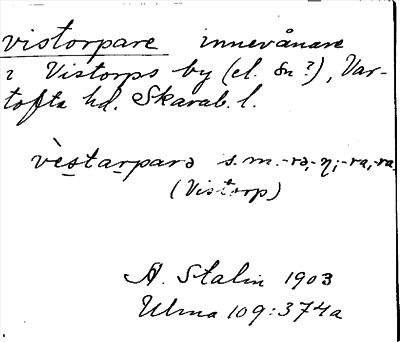 vistorpare innevånare
i Vistorps by (el. sn?), Var-
tofta hd. Skarab. l.
vèstarparə s.m. -rə, -η; -ra, -ra.
(Vistorp)
A. Stalin 1903
Ulma 109:374a